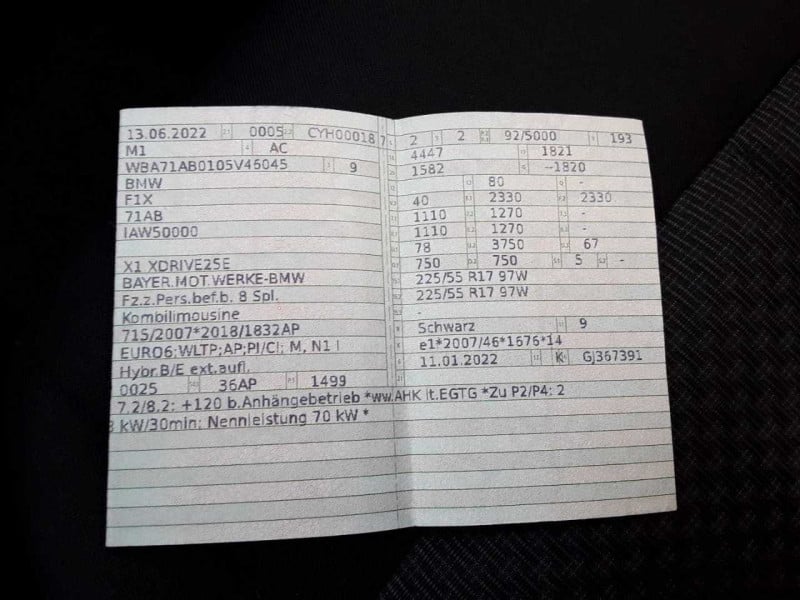 13.06.2022 0005 CYH00018 7
M1 AC
WBA71AB0105V46045 9
BMW
F1X
71AB
IAW50000
X1 XDRIVE25E
BAYER.MOT.WERKE-BMW
Fz.z.Pers.bef.b. 8 Spl.
Kombilimousine
715/2007*2018/1832AP
EURO6;WLTP;AP;PI/CI; M, N1 I
Hybr.B/E ext.aufl.
0025 36AP 1499
2 2 92/5000 193
4447 1821
1582 --1820
80 -
40 2330 2330
1110 1270 -
1110 1270 -
78 3750 67
750 750 5 -
225/55 R17 97W
225/55 R17 97W
-
Schwarz 9
e1*2007/46*1676*14
11.01.2022 K GJ367391
7.2/8.2: +120 b.Anhängebetrieb *ww.AHK lt.EGTG *Zu P2/P4: 2
kW/30min; Nennleistung 70 kW *